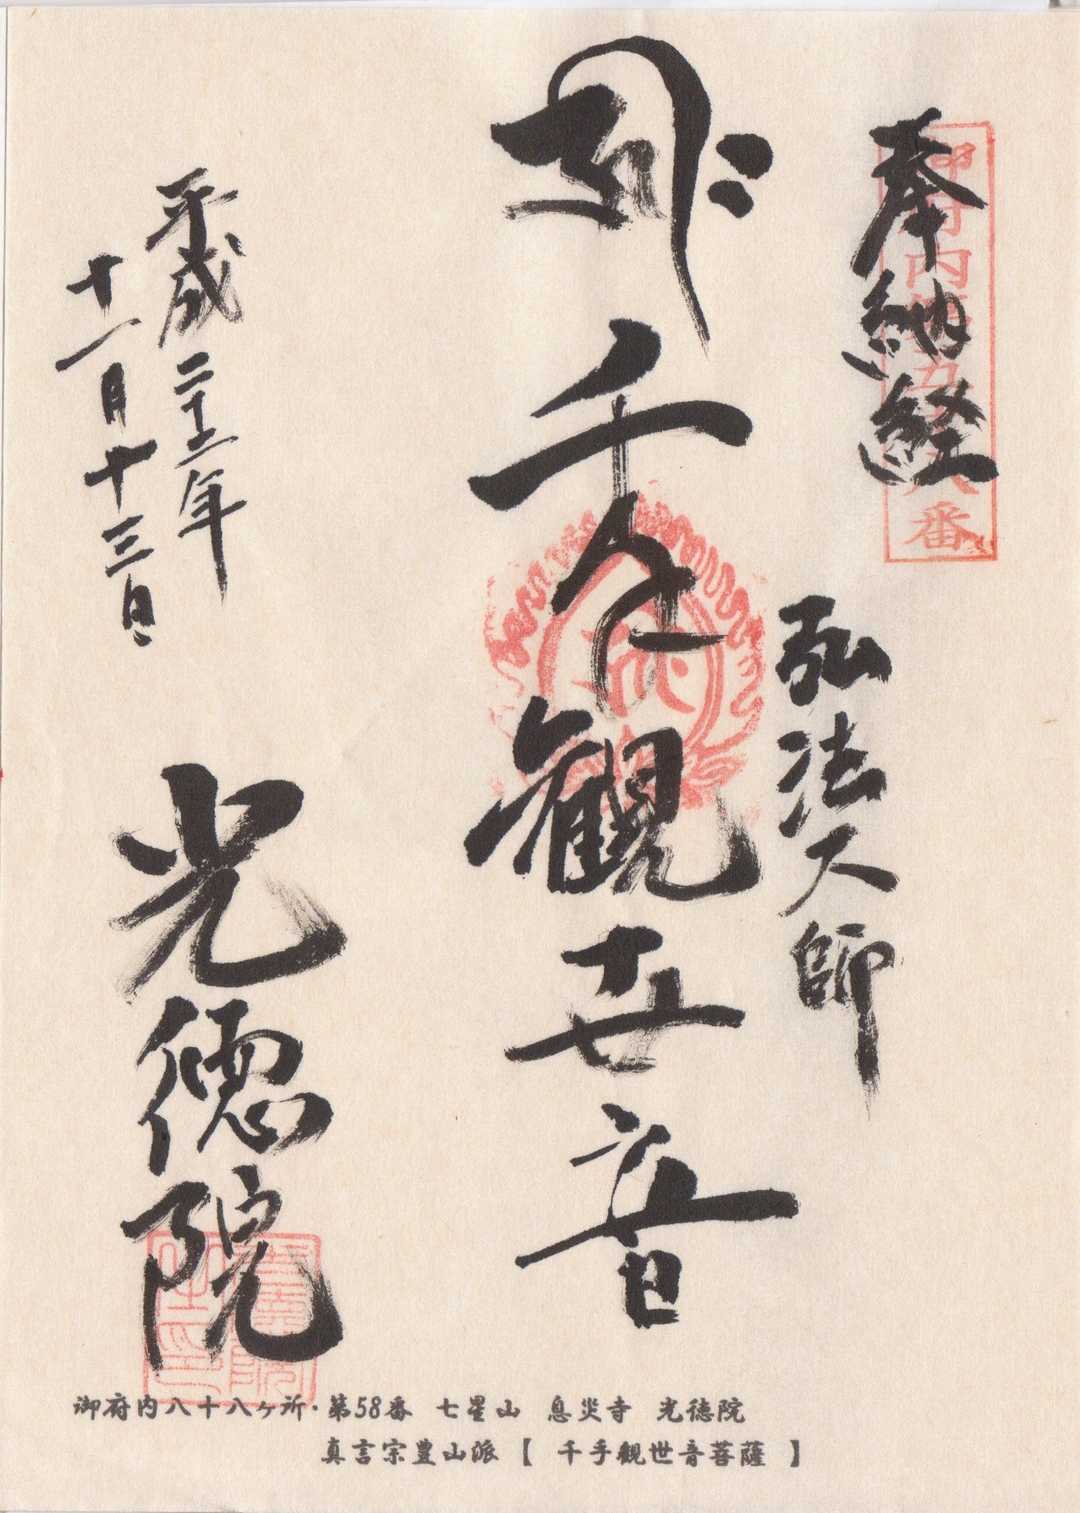 御府内第五十八番
奉納経
弘法大師
千手観世音
平成二十二年
十一月十三日
光徳院
御府内八十八ヶ所・第58番 七星山 息災寺 光徳院
真言宗豊山派【 千手観世音菩薩 】